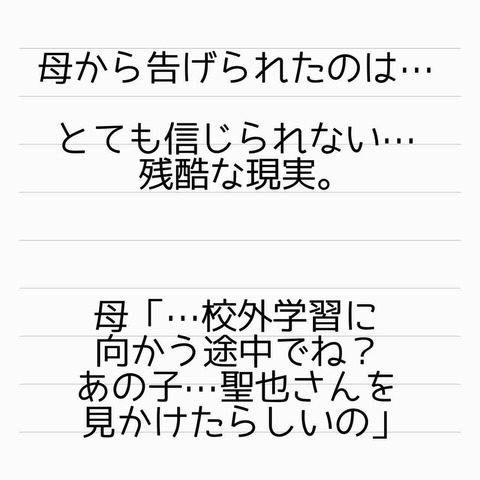 母から告げられたのは…
とても信じられない…
残酷な現実。
母「…校外学習に
向かう途中でね？
あの子…聖也さんを
見かけたらしいの」